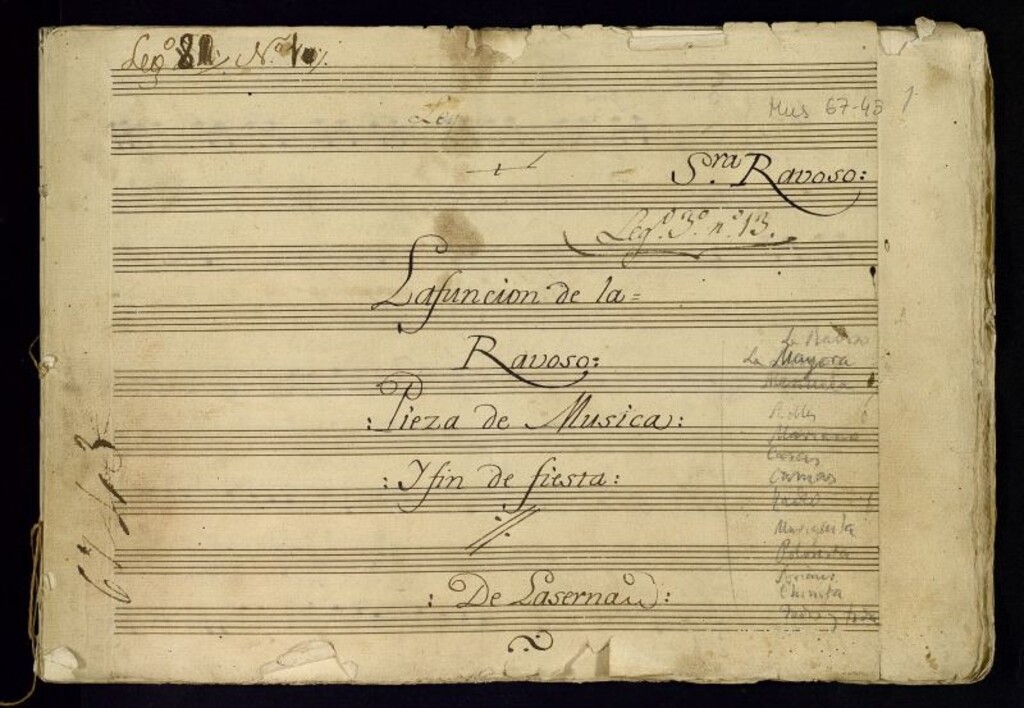 Leg.º 81 N.º 10
Leg
Mus 67-45 1
S.ra Ravoso:
Leg.º 3.º n.º 13.
La funcion de la=
Ravoso:
: Pieza de Musica:
: Y fin de fiesta:
: De Laserna:
La Mayora
Manuela
Robles
Mariana
Camas
Mariquita
Polonia
Chinita
todos y todas
67